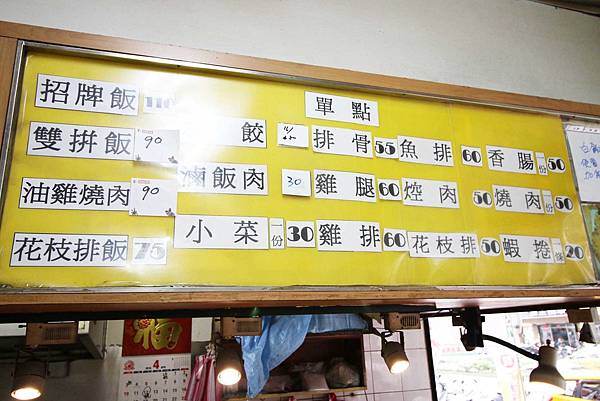 單點
招牌飯 110
雙拚飯 90
油雞燒肉 90
花枝排飯 75
餃
滷飯肉 30
小菜 一份 30
排骨 55
雞腿 60
雞排 60
魚排 60
焢肉 50
花枝排 50
香腸 一份 50
燒肉 一份 50
蝦捲 一條 20
福
4